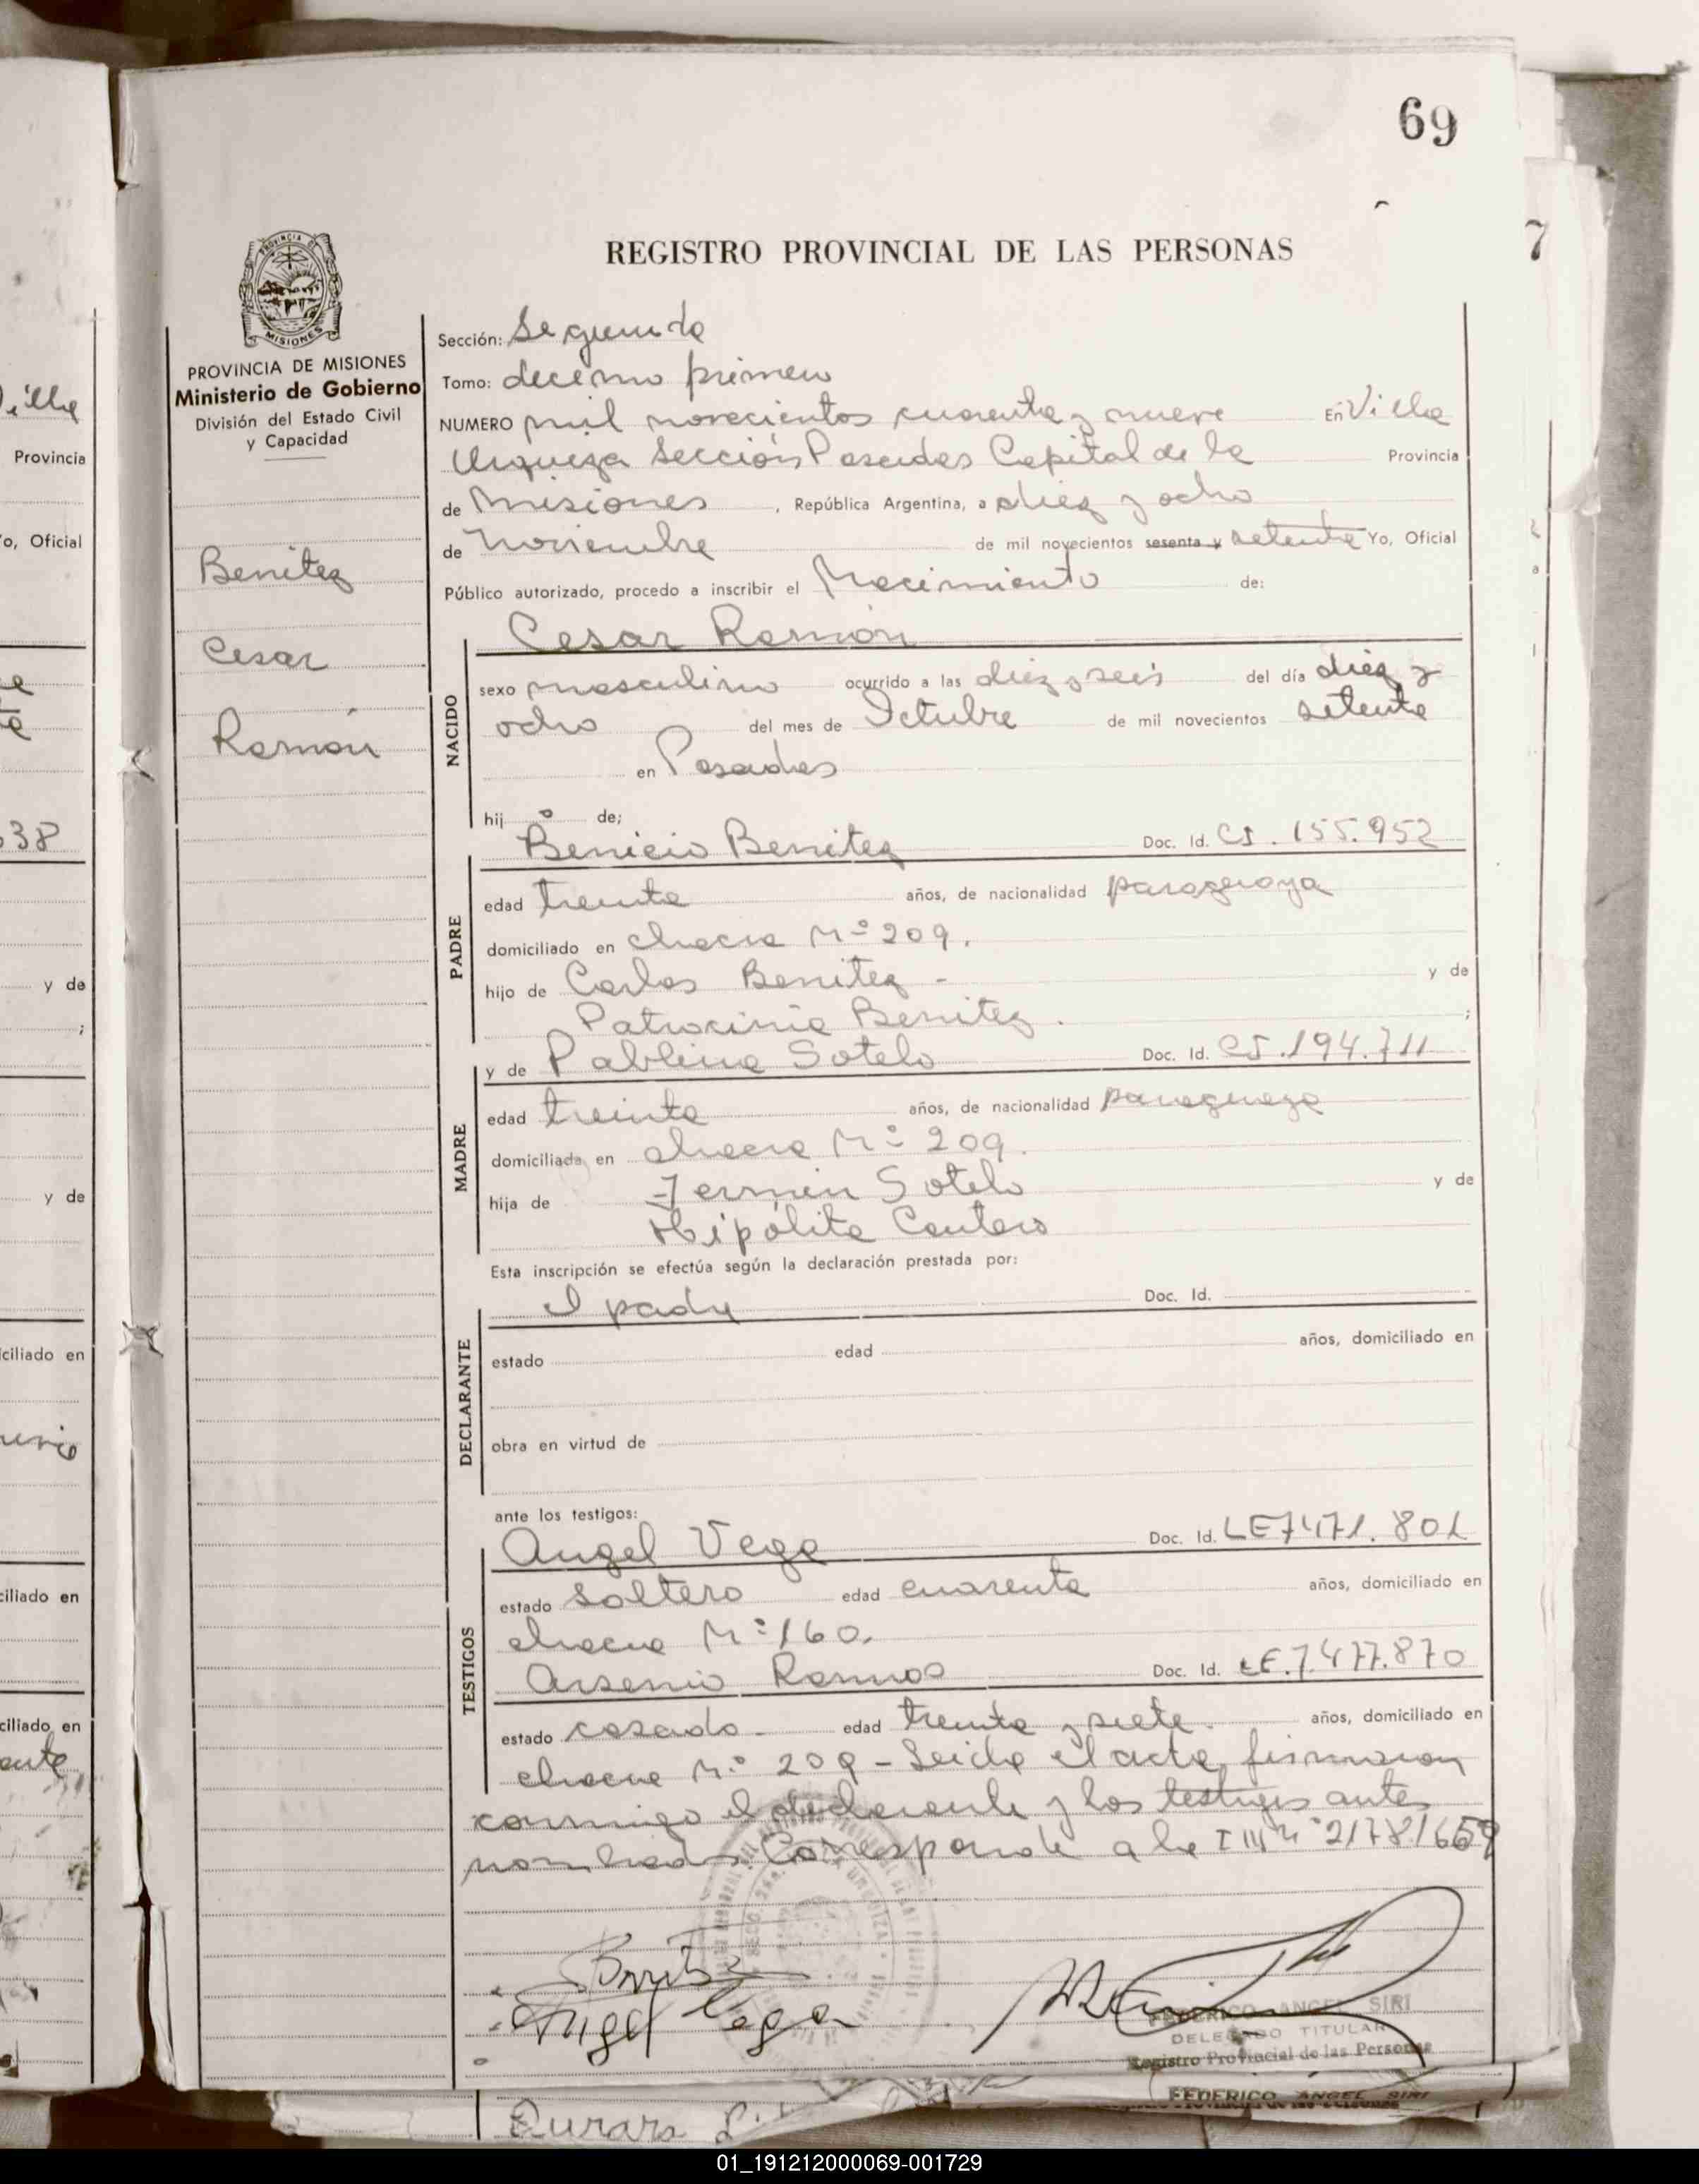 69
7
REGISTRO PROVINCIAL DE LAS PERSONAS
PROVINCIA DE MISIONES
Ministerio de Gobierno
División del Estado Civil
y Capacidad
Benitez
Cesar
Ramón
Sección: Segunda
Tomo: decimo primero
NUMERO mil novecientos cuarenta y nueve En Villa
Urquiza Sección Posadas Capital de la Provincia
de Misiones, República Argentina, a diez y ocho
de Noviembre de mil novecientos sesenta y setenta Yo, Oficial
Público autorizado, procedo a inscribir el Nacimiento de:
Cesar Ramón
NACIDO
sexo masculino ocurrido a las diez y seis del día diez y
ocho del mes de Octubre de mil novecientos setenta
en Posadas
hijo de;
Benicio Benitez Doc. Id. CI. 155.952
PADRE
edad treinta años, de nacionalidad paraguaya
domiciliado en chacra Nº 209.
hijo de Carlos Benitez - y de
Patrocinia Benitez. ;
y de Pablina Sotelo Doc. Id. CI. 194.711
MADRE
edad treinta años, de nacionalidad paraguaya
domiciliada en chacra Nº 209.
hija de Fermin Sotelo y de
Hipólita Centero
Esta inscripción se efectúa según la declaración prestada por:
el padre Doc. Id.
DECLARANTE
estado edad años, domiciliado en
obra en virtud de
ante los testigos:
Angel Vega Doc. Id. LE 7471.801
TESTIGOS
estado soltero edad cuarenta años, domiciliado en
chacra Nº 160.
Arsenio Ramos Doc. Id. LE.7.477.870
estado casado edad treinta y siete. años, domiciliado en
chacra Nº 209 - Leida el acta, firmaron
conmigo el declarante y los testigos antes
nombrados. Corresponde a la
Angel Vega
FEDERICO ANGEL SIRI
DELEGADO TITULAR
Registro Provincial de las Personas
FEDERICO ANGEL SIRI
01_191212000069-001729